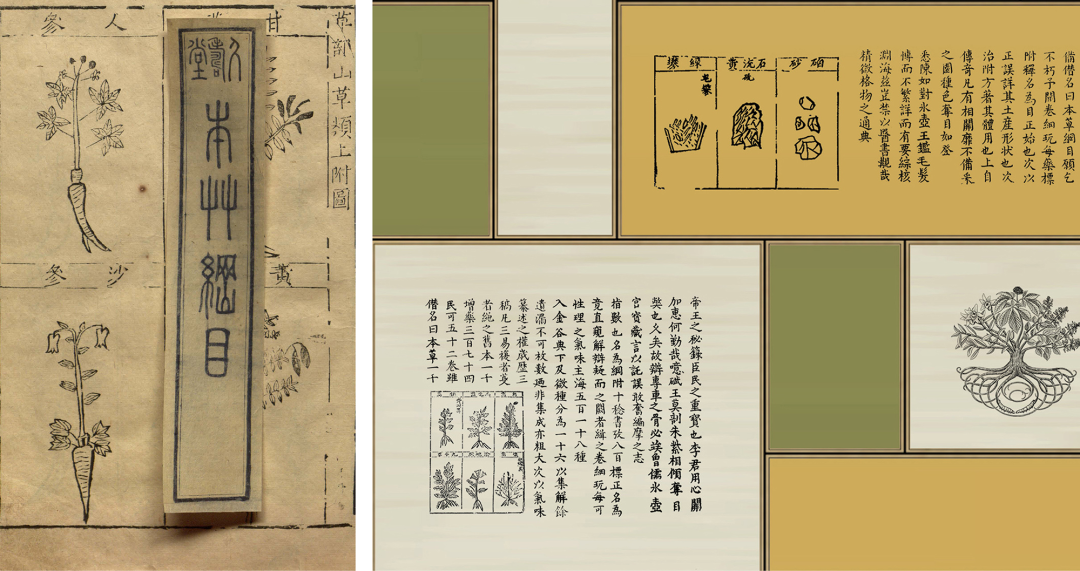 草部山草類上附圖
人參
沙參
黃
本艸綱目
名曰本草綱目願乞
不朽子開卷細玩每藥標
附釋名為目正始也次以
正誤詳其土產形狀也次
治附方著其體用也上自
傳奇凡有相關靡不備采
之圖種色奪目如登
悉陳如對氷壺玉鑑毛髮
博而不繁詳而有要綜核
淵海茲豈禁以醫書觀哉
精微格物之通典
砂
石硫黃
綠礬
皂礬
帝王之秘籙臣民之重寶也李君用心關
加惠何勤哉噫碔玉莫剖朱紫相傾奪目
獘也久矣故辯專車之骨必俟魯儒氷壺
官寶藏言以託誤敢奮編摩之志
指數也名為綱附十稔書攷八百標正名為
竟直窺解辯疑而之闕者緝之卷細玩每可
性理之氣味主海五百一十八種
入金谷典下及微種分為一十六以集解餘
遺漏不可枚數廼非集成亦粗大次以氣味
纂述之權歲歷三
稿凡三易複者芟
者繩之舊本一千
增藥三百七十四
民可五十二卷雖
僭名曰本草一十